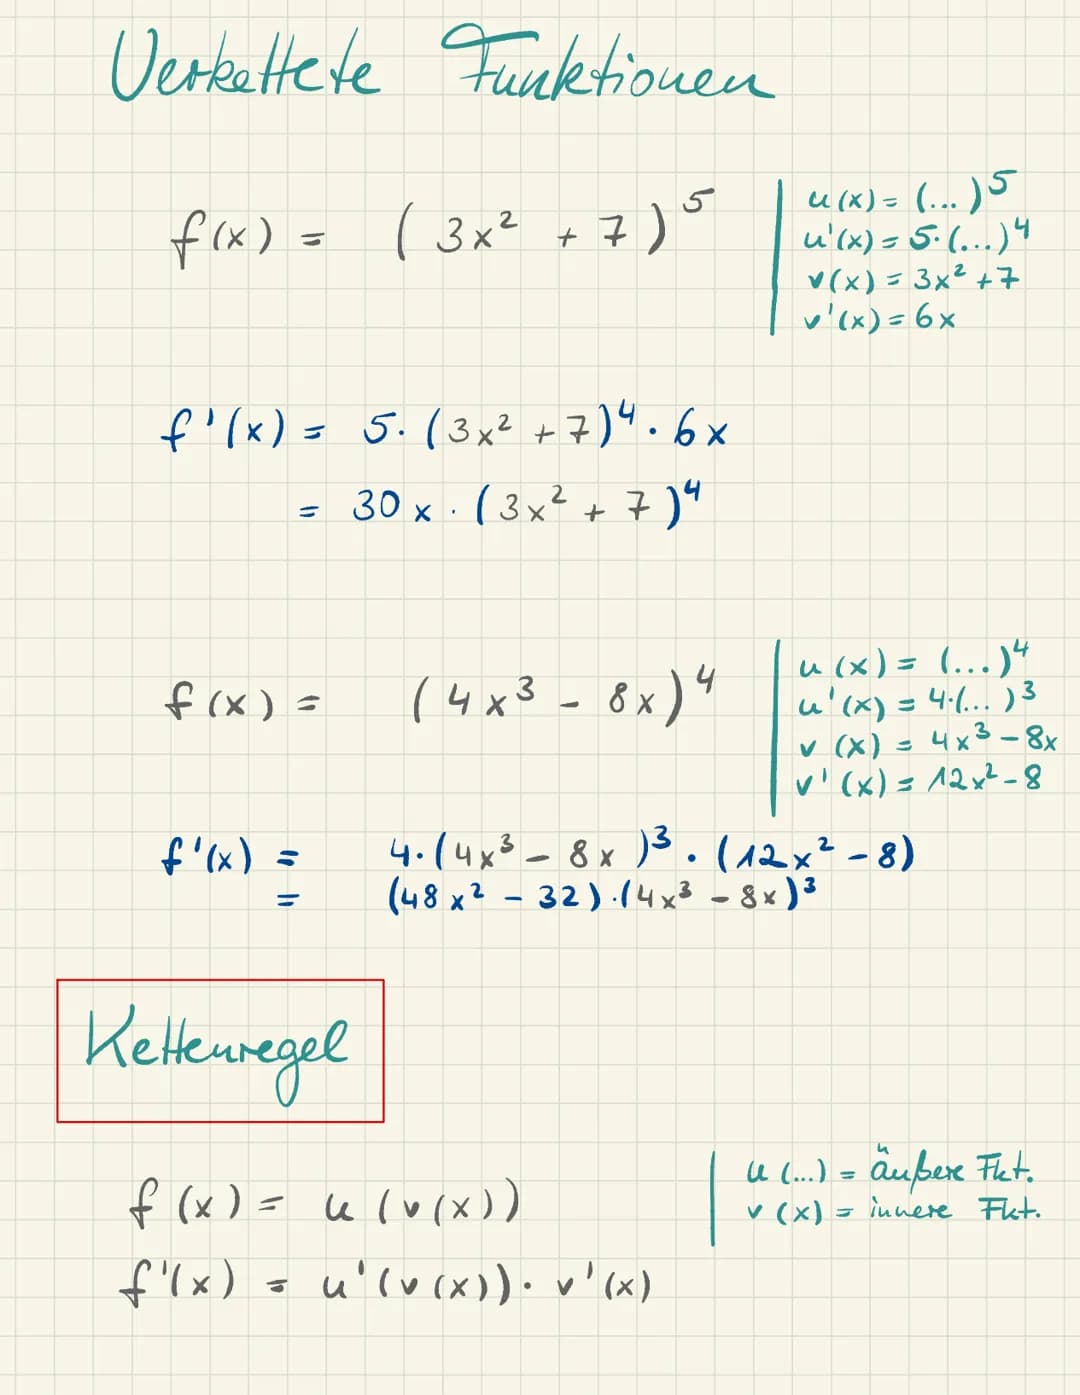 Verkettete Funktionen
f(x) = (3x² + 7)⁵
u(x) = (...)⁵
u'(x) = 5·(...)⁴
v(x) = 3x² + 7
v'(x) = 6x
f'(x) = 5·(3x² + 7)⁴ · 6x
= 30x · (3x² + 7)⁴
f(x) = (4x³ - 8x)⁴
u(x) = (...)⁴
u'(x) = 4·(...)³
v(x) = 4x³ - 8x
v'(x) = 12x² - 8
f'(x) = 4·(4x³ - 8x)³ · (12x² - 8)
= (48x² - 32)·(4x³ - 8x)³
Kettenregel
f(x) = u(v(x))
u(...) = äußere Fkt.
v(x) = innere Fkt.
f'(x) = u'(v(x)) · v'(x)